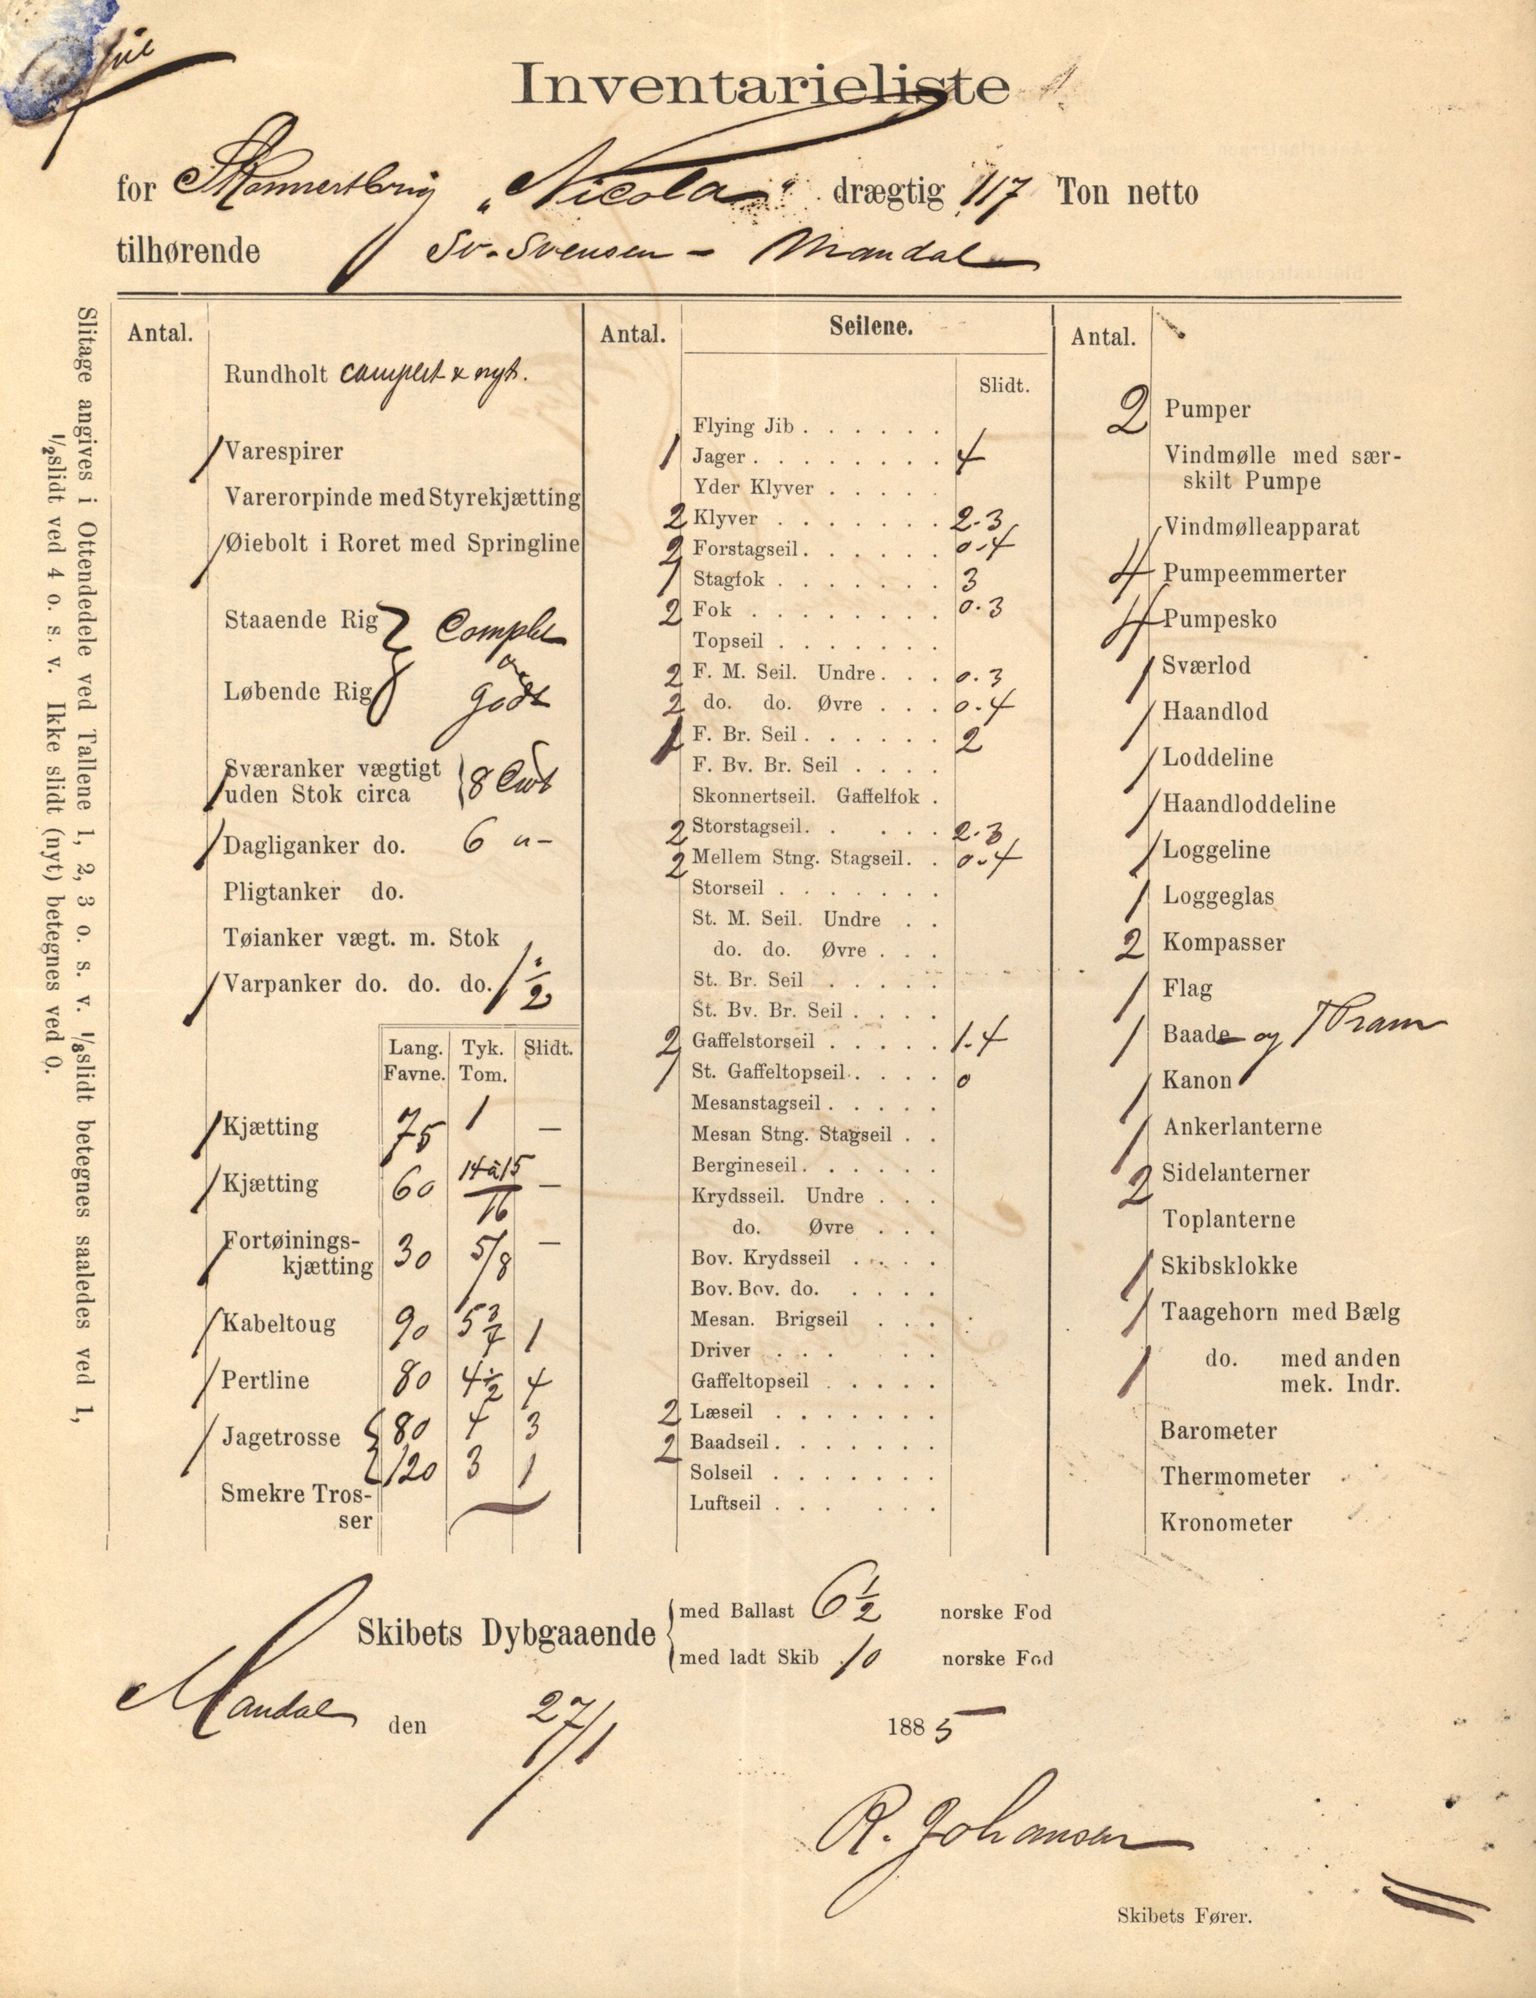 Inventarieliste
for Skonnertbrig „Nicola" drægtig 117 Ton netto
tilhørende Sv. Svensen - Mandal
Slitage angives i Ottendedele ved Tallene 1, 2, 3 o. s. v. 1/8 slidt betegnes saaledes ved 1,
1/2 slidt ved 4 o. s. v. Ikke slidt (nyt) betegnes ved 0.
Antal.
Rundholt complet & nyt.
1 Varespirer
Varerorpinde med Styrekjætting
1 Øiebolt i Roret med Springline
Staaende Rig } Complet
Løbende Rig } og godt
1 Sværanker vægtigt
uden Stok circa } 8 Cwt
1 Dagliganker do. 6 "-
Pligtanker do.
Tøianker vægt. m. Stok
1 Varpanker do. do. do. 1 1/2
Lang. Tyk. Slidt.
Favne. Tom.
1 Kjætting 75 1 —
1 Kjætting 60 14 à 15/16 —
1 Fortøinings-
kjætting 30 5/8 —
1 Kabeltoug 90 5 3/4 1
1 Pertline 80 4 1/2 4
1 Jagetrosse { 80 4 3
{ 120 3 1
Smekre Tros-
ser
Antal. Seilene.
Slidt.
Flying Jib . . . . . .
1 Jager . . . . . . . . 4
Yder Klyver . . . . .
2 Klyver . . . . . . . 2-3
2 Forstagseil . . . . . . 0-4
1 Stagfok . . . . . . . 3
2 Fok . . . . . . . . 0.3
Topseil . . . . . . .
2 F. M. Seil. Undre . . . 0.3
2 do. do. Øvre . . . 0.4
1 F. Br. Seil . . . . . . 2
F. Bv. Br. Seil . . . .
Skonnertseil. Gaffelfok .
2 Storstagseil . . . . . 2.3
2 Mellem Stng. Stagseil . . 0.4
Storseil . . . . . . .
St. M. Seil. Undre . .
do. do. Øvre . . .
St. Br. Seil . . . . .
St. Bv. Br. Seil . . . .
2 Gaffelstorseil . . . . . 1-4
1 St. Gaffeltopseil . . . . 0
Mesanstagseil . . . . .
Mesan Stng. Stagseil . .
Bergineseil . . . . . .
Krydsseil. Undre . . .
do. Øvre . . .
Bov. Krydsseil . . . .
Bov. Bov. do. . . . .
Mesan. Brigseil . . .
Driver . . . . .
Gaffeltopseil . . . . .
2 Læseil . . . . . . .
2 Baadseil . . . . . . .
Solseil . . . . . . .
Luftseil . . . . . .
Antal.
2 Pumper
Vindmølle med sær-
skilt Pumpe
1 Vindmølleapparat
4 Pumpeemmerter
4 Pumpesko
1 Sværlod
1 Haandlod
1 Loddeline
1 Haandloddeline
1 Loggeline
1 Loggeglas
2 Kompasser
1 Flag
1 Baade og 1 Pram
1 Kanon
1 Ankerlanterne
2 Sidelanterner
Toplanterne
1 Skibsklokke
1 Taagehorn med Bælg
1 do. med anden
mek. Indr.
Barometer
Thermometer
Kronometer
Skibets Dybgaaende { med Ballast 6 1/2 norske Fod
{ med ladt Skib 10 norske Fod
Mandal den 27/1 1885
R. Johansen
Skibets Fører.